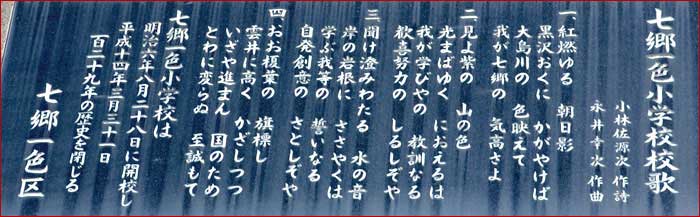 七郷一色小学校校歌
小林佐源次 作詩
永井幸次 作曲
一、紅燃ゆる 朝日影
黒沢おくに かがやけば
大島川の 色映えて
我が七郷の 気高さよ
二、見よ紫の 山の色
光まばゆく におえるは
我が学びやの 教訓なる
歓喜努力の しるしぞや
三、聞け澄みわたる 水の音
岸の岩根に ささやくは
学ぶ我等の 誓いなる
自発創意の さとしぞや
四、おお榎葉の 旗標し
雲井に高く かざしつつ
いざや進まん 国のため
とわに変らぬ 至誠もて
七郷一色小学校は
明治六年八月二十八日に開校し
平成十四年三月三十一日
百二十九年の歴史を閉じる
七郷一色区